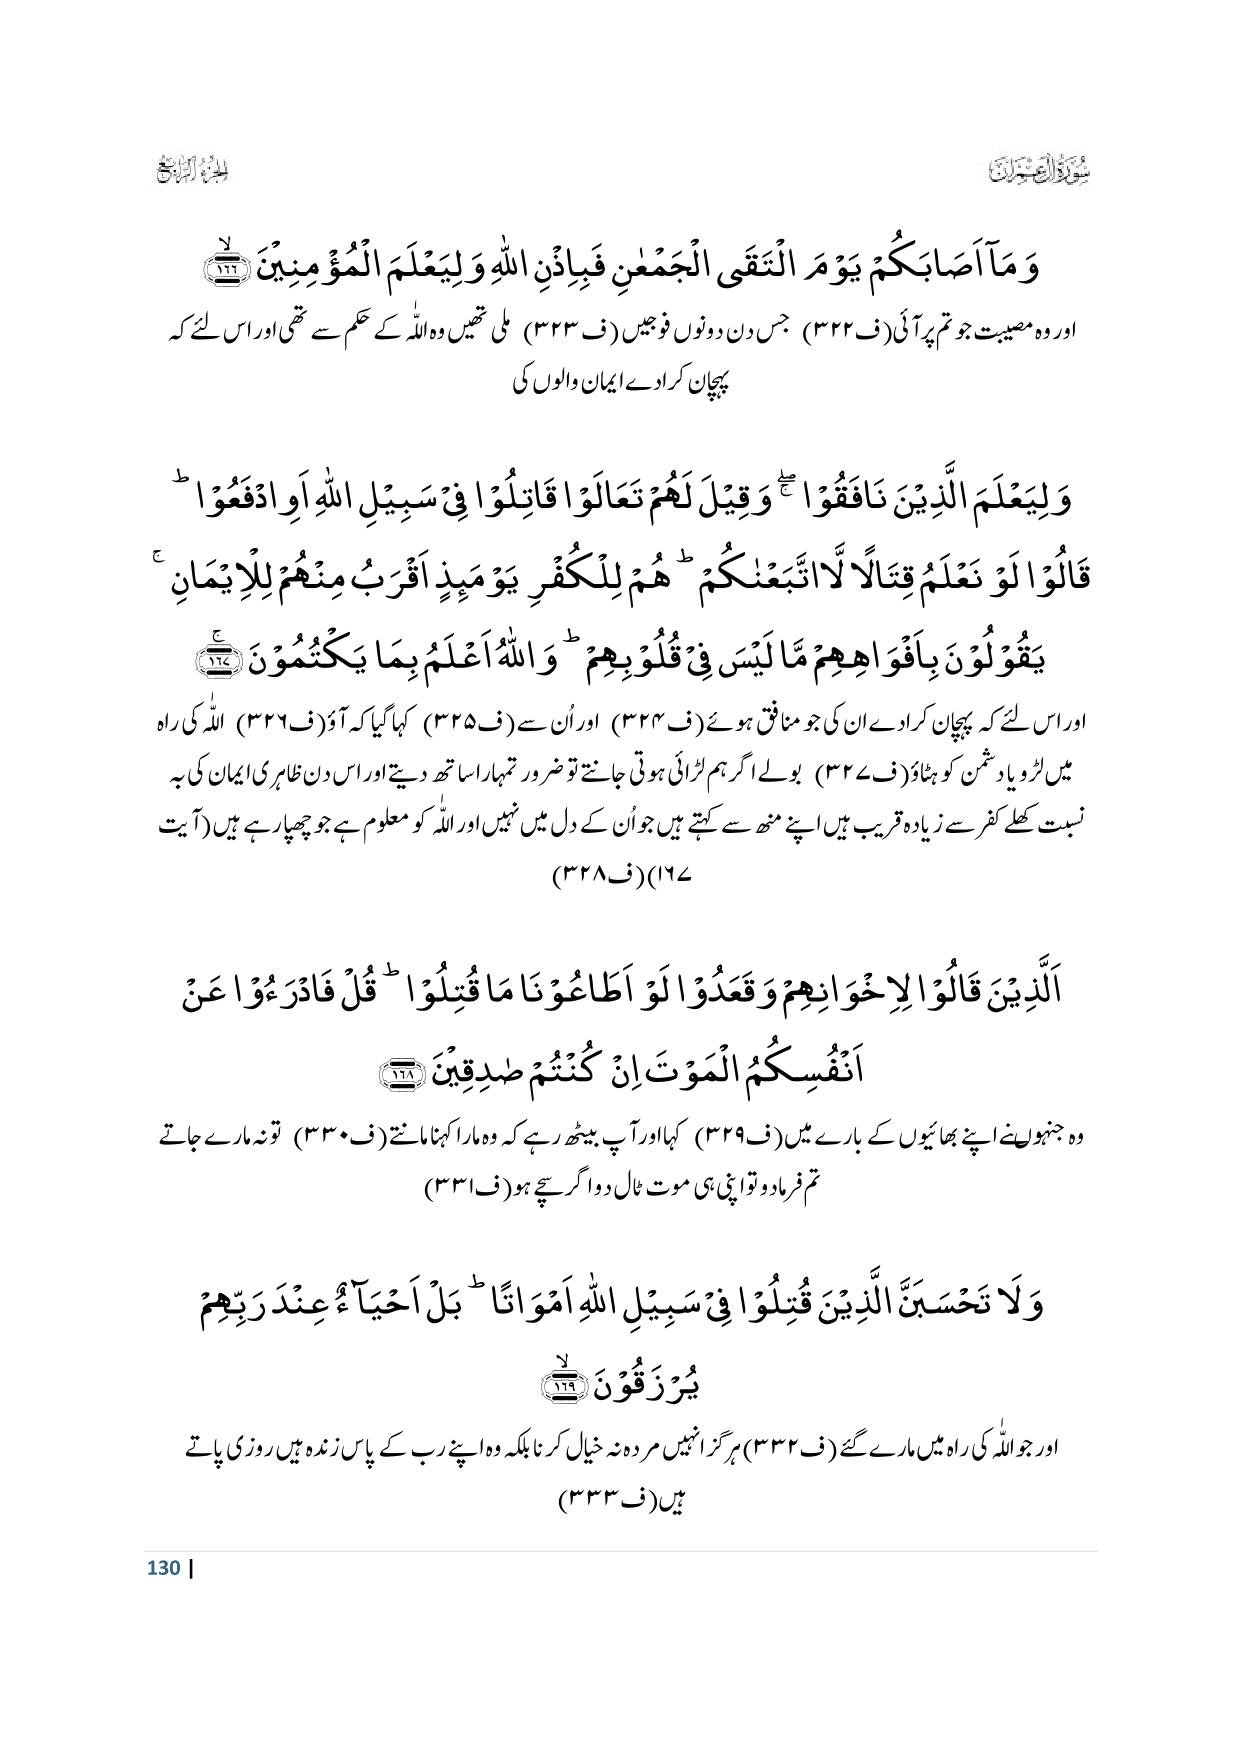 سُوْرَةُ اٰلِ عِمْرَان
الجزء الرابع
وَ مَاۤ اَصَابَكُمْ یَوْمَ الْتَقَى الْجَمْعٰنِ فَبِاِذْنِ اللّٰهِ وَ لِیَعْلَمَ الْمُؤْمِنِیْنَۙ ﴿۱۶۶﴾
اور وہ مصیبت جو تم پر آئی (ف۳۲۲) جس دن دونوں فوجیں (ف۳۲۳) ملی تھیں وہ اللّٰہ کے حکم سے تھی اور اس لئے کہ
پہچان کرادے ایمان والوں کی
وَ لِیَعْلَمَ الَّذِیْنَ نَافَقُوْا ۖۚ وَ قِیْلَ لَهُمْ تَعَالَوْا قَاتِلُوْا فِیْ سَبِیْلِ اللّٰهِ اَوِ ادْفَعُوْاؕ
قَالُوْا لَوْ نَعْلَمُ قِتَالًا لَّا اتَّبَعْنٰكُمْؕ هُمْ لِلْكُفْرِ یَوْمَىٕذٍ اَقْرَبُ مِنْهُمْ لِلْاِیْمَانِۚ
یَقُوْلُوْنَ بِاَفْوَاهِهِمْ مَّا لَیْسَ فِیْ قُلُوْبِهِمْؕ وَ اللّٰهُ اَعْلَمُ بِمَا یَكْتُمُوْنَۚ ﴿۱۶۷﴾
اور اس لئے کہ پہچان کرادے ان کی جو منافق ہوئے (ف۳۲۴) اور اُن سے (ف۳۲۵) کہا گیا کہ آؤ (ف۳۲۶) اللّٰہ کی راہ
میں لڑو یا دشمن کو ہٹاؤ (ف۳۲۷) بولے اگر ہم لڑائی ہوتی جانتے تو ضرور تمہارا ساتھ دیتے اور اس دن ظاہری ایمان کی بہ
نسبت کھلے کفر سے زیادہ قریب ہیں اپنے منھ سے کہتے ہیں جو اُن کے دل میں نہیں اور اللّٰہ کو معلوم ہے جو چھپا رہے ہیں (آیت
۱۶۷) (ف۳۲۸)
اَلَّذِیْنَ قَالُوْا لِاِخْوَانِهِمْ وَ قَعَدُوْا لَوْ اَطَاعُوْنَا مَا قُتِلُوْاؕ قُلْ فَادْرَءُوْا عَنْ
اَنْفُسِكُمُ الْمَوْتَ اِنْ كُنْتُمْ صٰدِقِیْنَ ﴿۱۶۸﴾
وہ جنہوں نے اپنے بھائیوں کے بارے میں (ف۳۲۹) کہا اور آپ بیٹھ رہے کہ وہ مارا کہنا مانتے (ف۳۳۰) تو نہ مارے جاتے
تم فرمادو تو اپنی ہی موت ٹال دو اگر سچے ہو (ف۳۳۱)
وَ لَا تَحْسَبَنَّ الَّذِیْنَ قُتِلُوْا فِیْ سَبِیْلِ اللّٰهِ اَمْوَاتًاؕ بَلْ اَحْیَآءٌ عِنْدَ رَبِّهِمْ
یُرْزَقُوْنَۙ ﴿۱۶۹﴾
اور جو اللّٰہ کی راہ میں مارے گئے (ف۳۳۲) ہرگز انہیں مردہ نہ خیال کرنا بلکہ وہ اپنے رب کے پاس زندہ ہیں روزی پاتے
ہیں (ف۳۳۳)
130 |